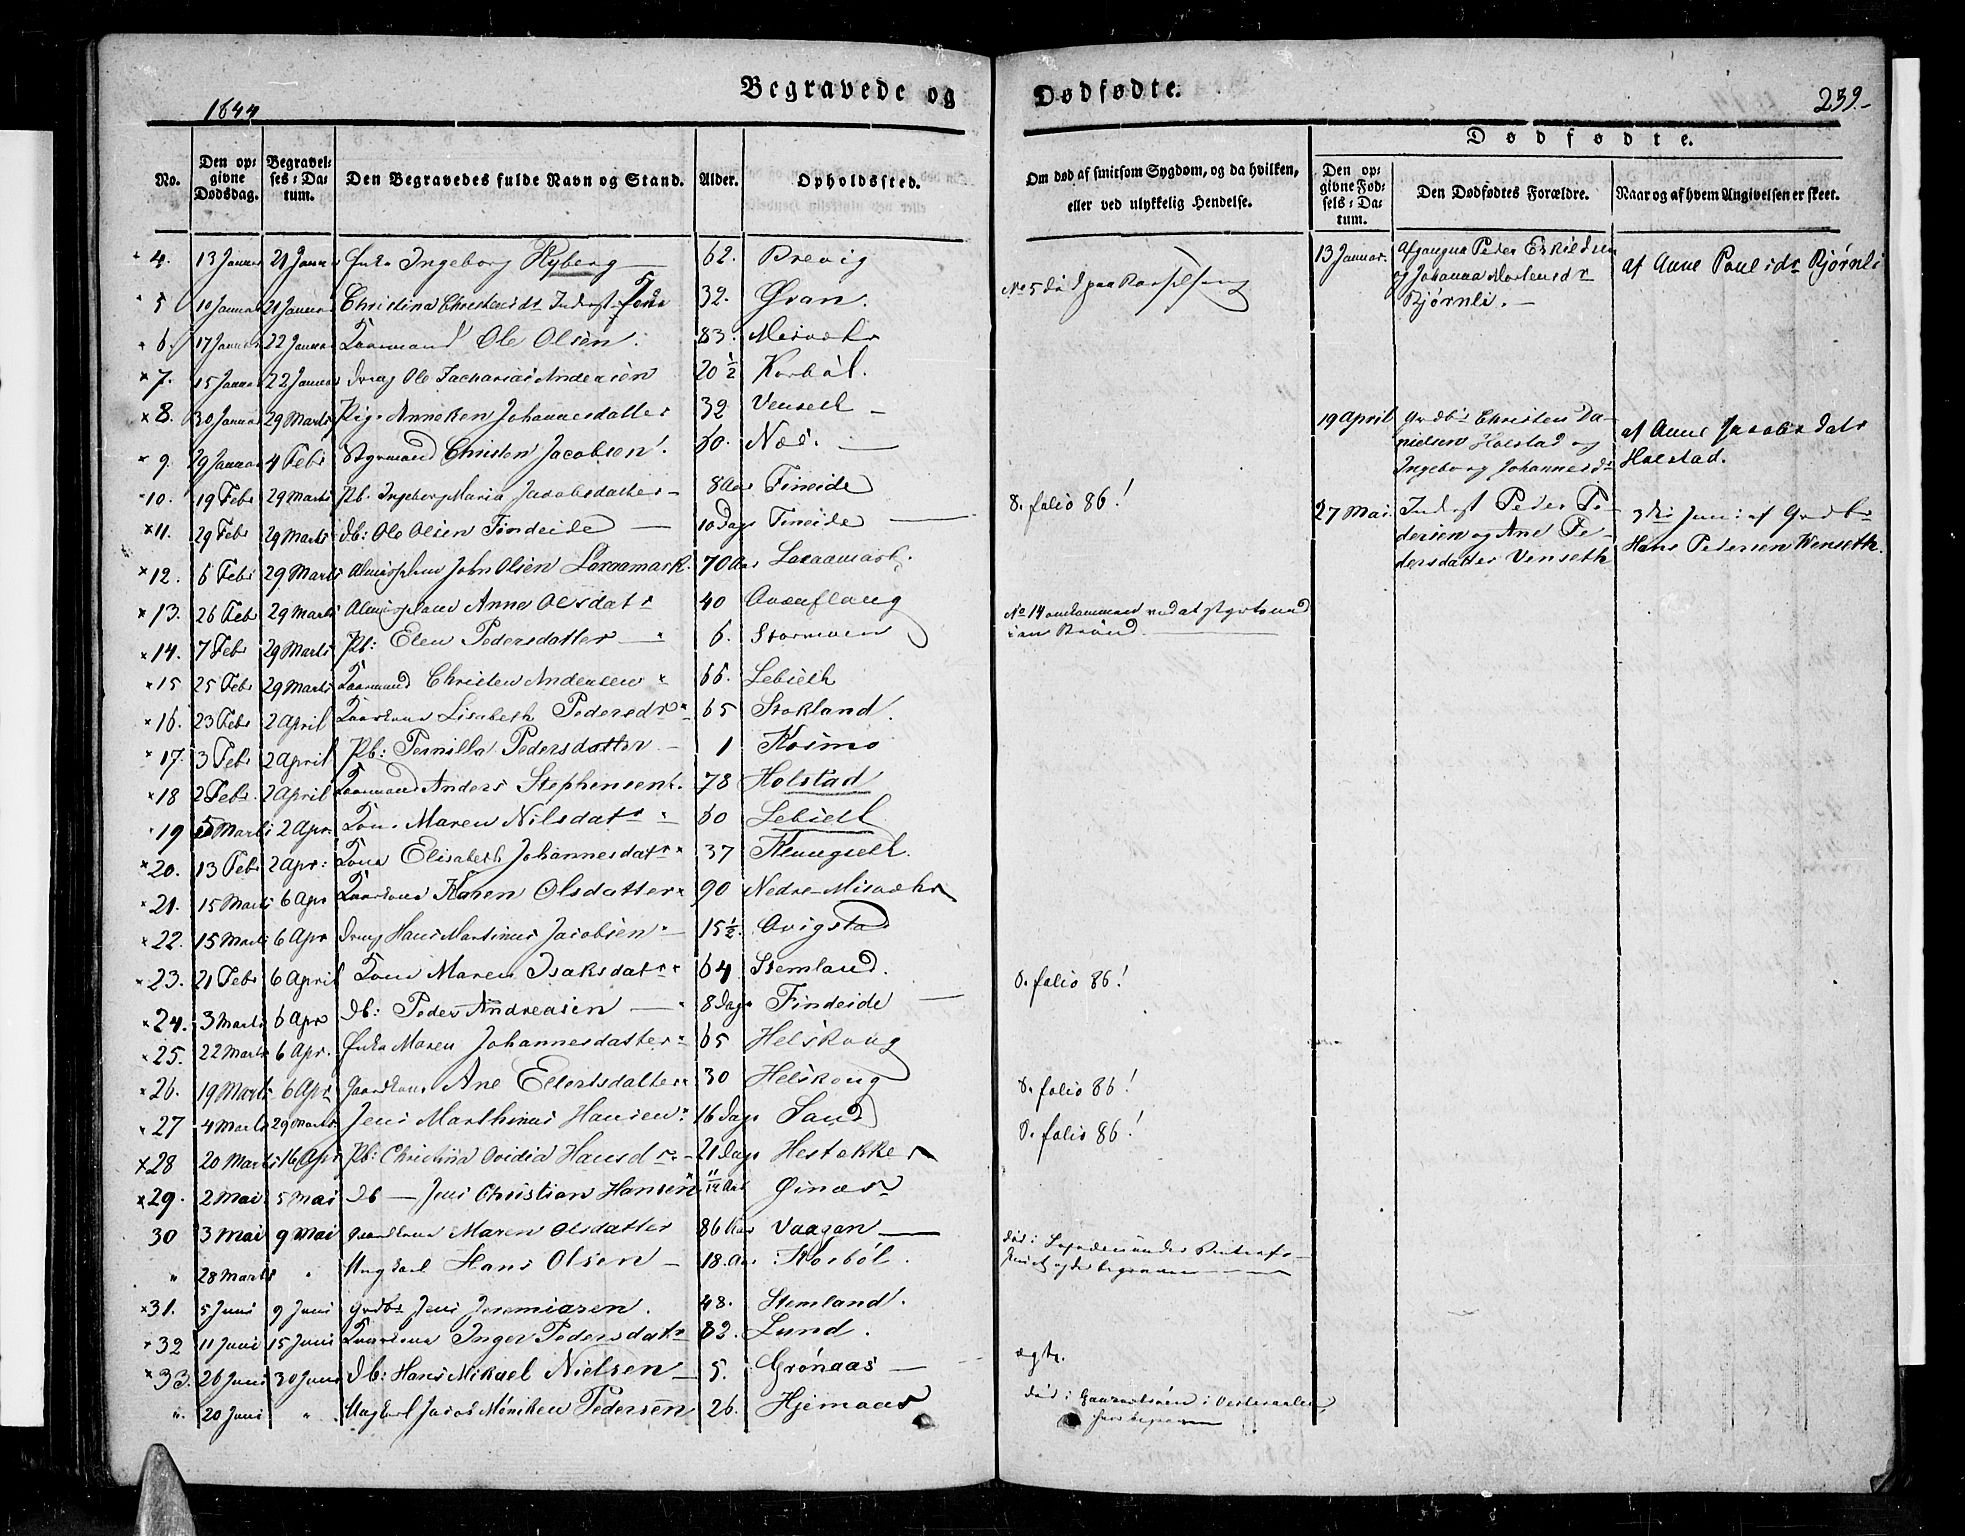 1844
Begravede og Dødfødte.
239.-
No.
Den opgivne Dødsdag.
Begravelses-Datum.
Den Begravedes fulde Navn og Stand.
Alder.
Opholdssted.
Om død af smitsom Sygdom, og da hvilken,
eller ved ulykkelig Hendelse.
Dødfødte.
Den opgivne Fødsels-Datum.
Den Dødfødtes Forældre.
Naar og af hvem Angivelsen er skeet.
4. 13 Januar 21 Januar Enke Ingeborg Ryberg 62. Brevig
5 10 Januar 21 Januar Christina Christensdr Inderst Kone 32. Øran. No 5 død paa Barselseng
6. 17 Januar 22 Januar Kaarmand Ole Olsen. 83. Misvær
7. 15 Januar 22 Januar dreng Ole Zacharias Andersen 20 1/2 Korbøl.
8. 30 Januar 29 Marts Pige Anneken Johannesdatter 32 Venseth
9. 29 Januar 4 Febr Styrmand Christen Jacobsen. 60. Næs.
10. 19 Febr 29 Marts Pb. Ingeborg Maria Jacobsdatter 8 Aar Fineide 8. folio 86!
11. 29 Febr 29 Marts Db: Ole Olsen Findeide 10 Dage Fineide
12. 6 Febr 29 Marts Almislem John Olsen Loraamark. 70 Aar Laraamark.
13. 26 Feb 29 Marts Anne Olsdatr 40 Oxenflaug
14. 7 Febr 29 Marts Pb: Elen Pedersdatter 6. Stormoen No 14 omkommen ved at styrte ned
i en Brønd.
15 25 Febr 29 Marts Kaarmand Christen Andersen 66. Lebseth
16. 23 Febr 2 April Kaarkone Lisabeth Pedersdr 65 Stokland.
17. 3 Febr 2 April Pb: Pernilla Pedersdatter 1 Kosmo
18 2 Febr 2 April Kaarmand Anders Stephensen. 78 Holstad
19 5 Marts 2 Apr. Kone Maren Nilsdatr 60 Lebseth
20. 13 Febr 2 Apr: Kone Elisabeth Johannesdatr 37 Klungseth.
21. 15 Marts 6 Apr Kaarkone Karen Olsdatter 90 Nedre-Misvær
22. 15 Marts 6 Apr dreng Hans Martinus Jacobsen 15 1/2. Qvigstad
23. 21 Febr 6 April Kone Maren Isaksdatr 64 Stemland. 8. folio 86!
24. 3 Marts 6 Apr Db: Peder Andreasen 8 Dage Findeide
25. 22 Marts 6 Apr. Enke Maren Johannesdatter 65 Helskoug
26. 19 Marts 6 Apr Gaardkone Ane Ellertsdatter 30 Helskoug 8. folio 86!
27 4 Marts 29 Marts Jens Marthinus Hansen 16 Dage Sand 8. folio 86!
28 20 Marts 16 Apr Pb: Christina Ovidia Hansdr 21 Dage Hestekker
29. 2 Mai 5 Mai Db — Jens Christian Hansen 11/12 Aar Øinæs
30 3 Mai 9 Mai Gaardkone Maren Olsdatter 86 Aar Vaagan
" 28 Marts " Ungkarl Hans Olsen 18. Aar Korbøl. død i Lofoden under Vinterfi-
skeriet og der begraven
31. 5 Juni 9 Juni Grdbr Jens Jeremiasen. 48. Stemland.
32 11 Juni 15 Juni Kaarkone Inger Pedersdatr 82. Lund.
33. 26 Juni 30 Juni Db: Hans Mikael Nielsen 5. Grønaas ægte.
" 20 Juni " Ungkarl Jacob Møniken Pedersen 26. Hjemaas død i Vesteraalen,
13 Januar. Peder Eskildsen
og Johanna Mortensdr
Bjørnli.
af Anne Poulsdr Bjørnli
19 April Grdbr Christen Da-
nielsen Holstad og
Ingeborg Johannesdr
af Anne Jacobsdatr
Holstad.
27 Mai. Inderst Peder Pe-
dersen og Ane Pe-
dersdatter Venseth
3die Juni af Grdbr
Hans Pedersen Wenseth.